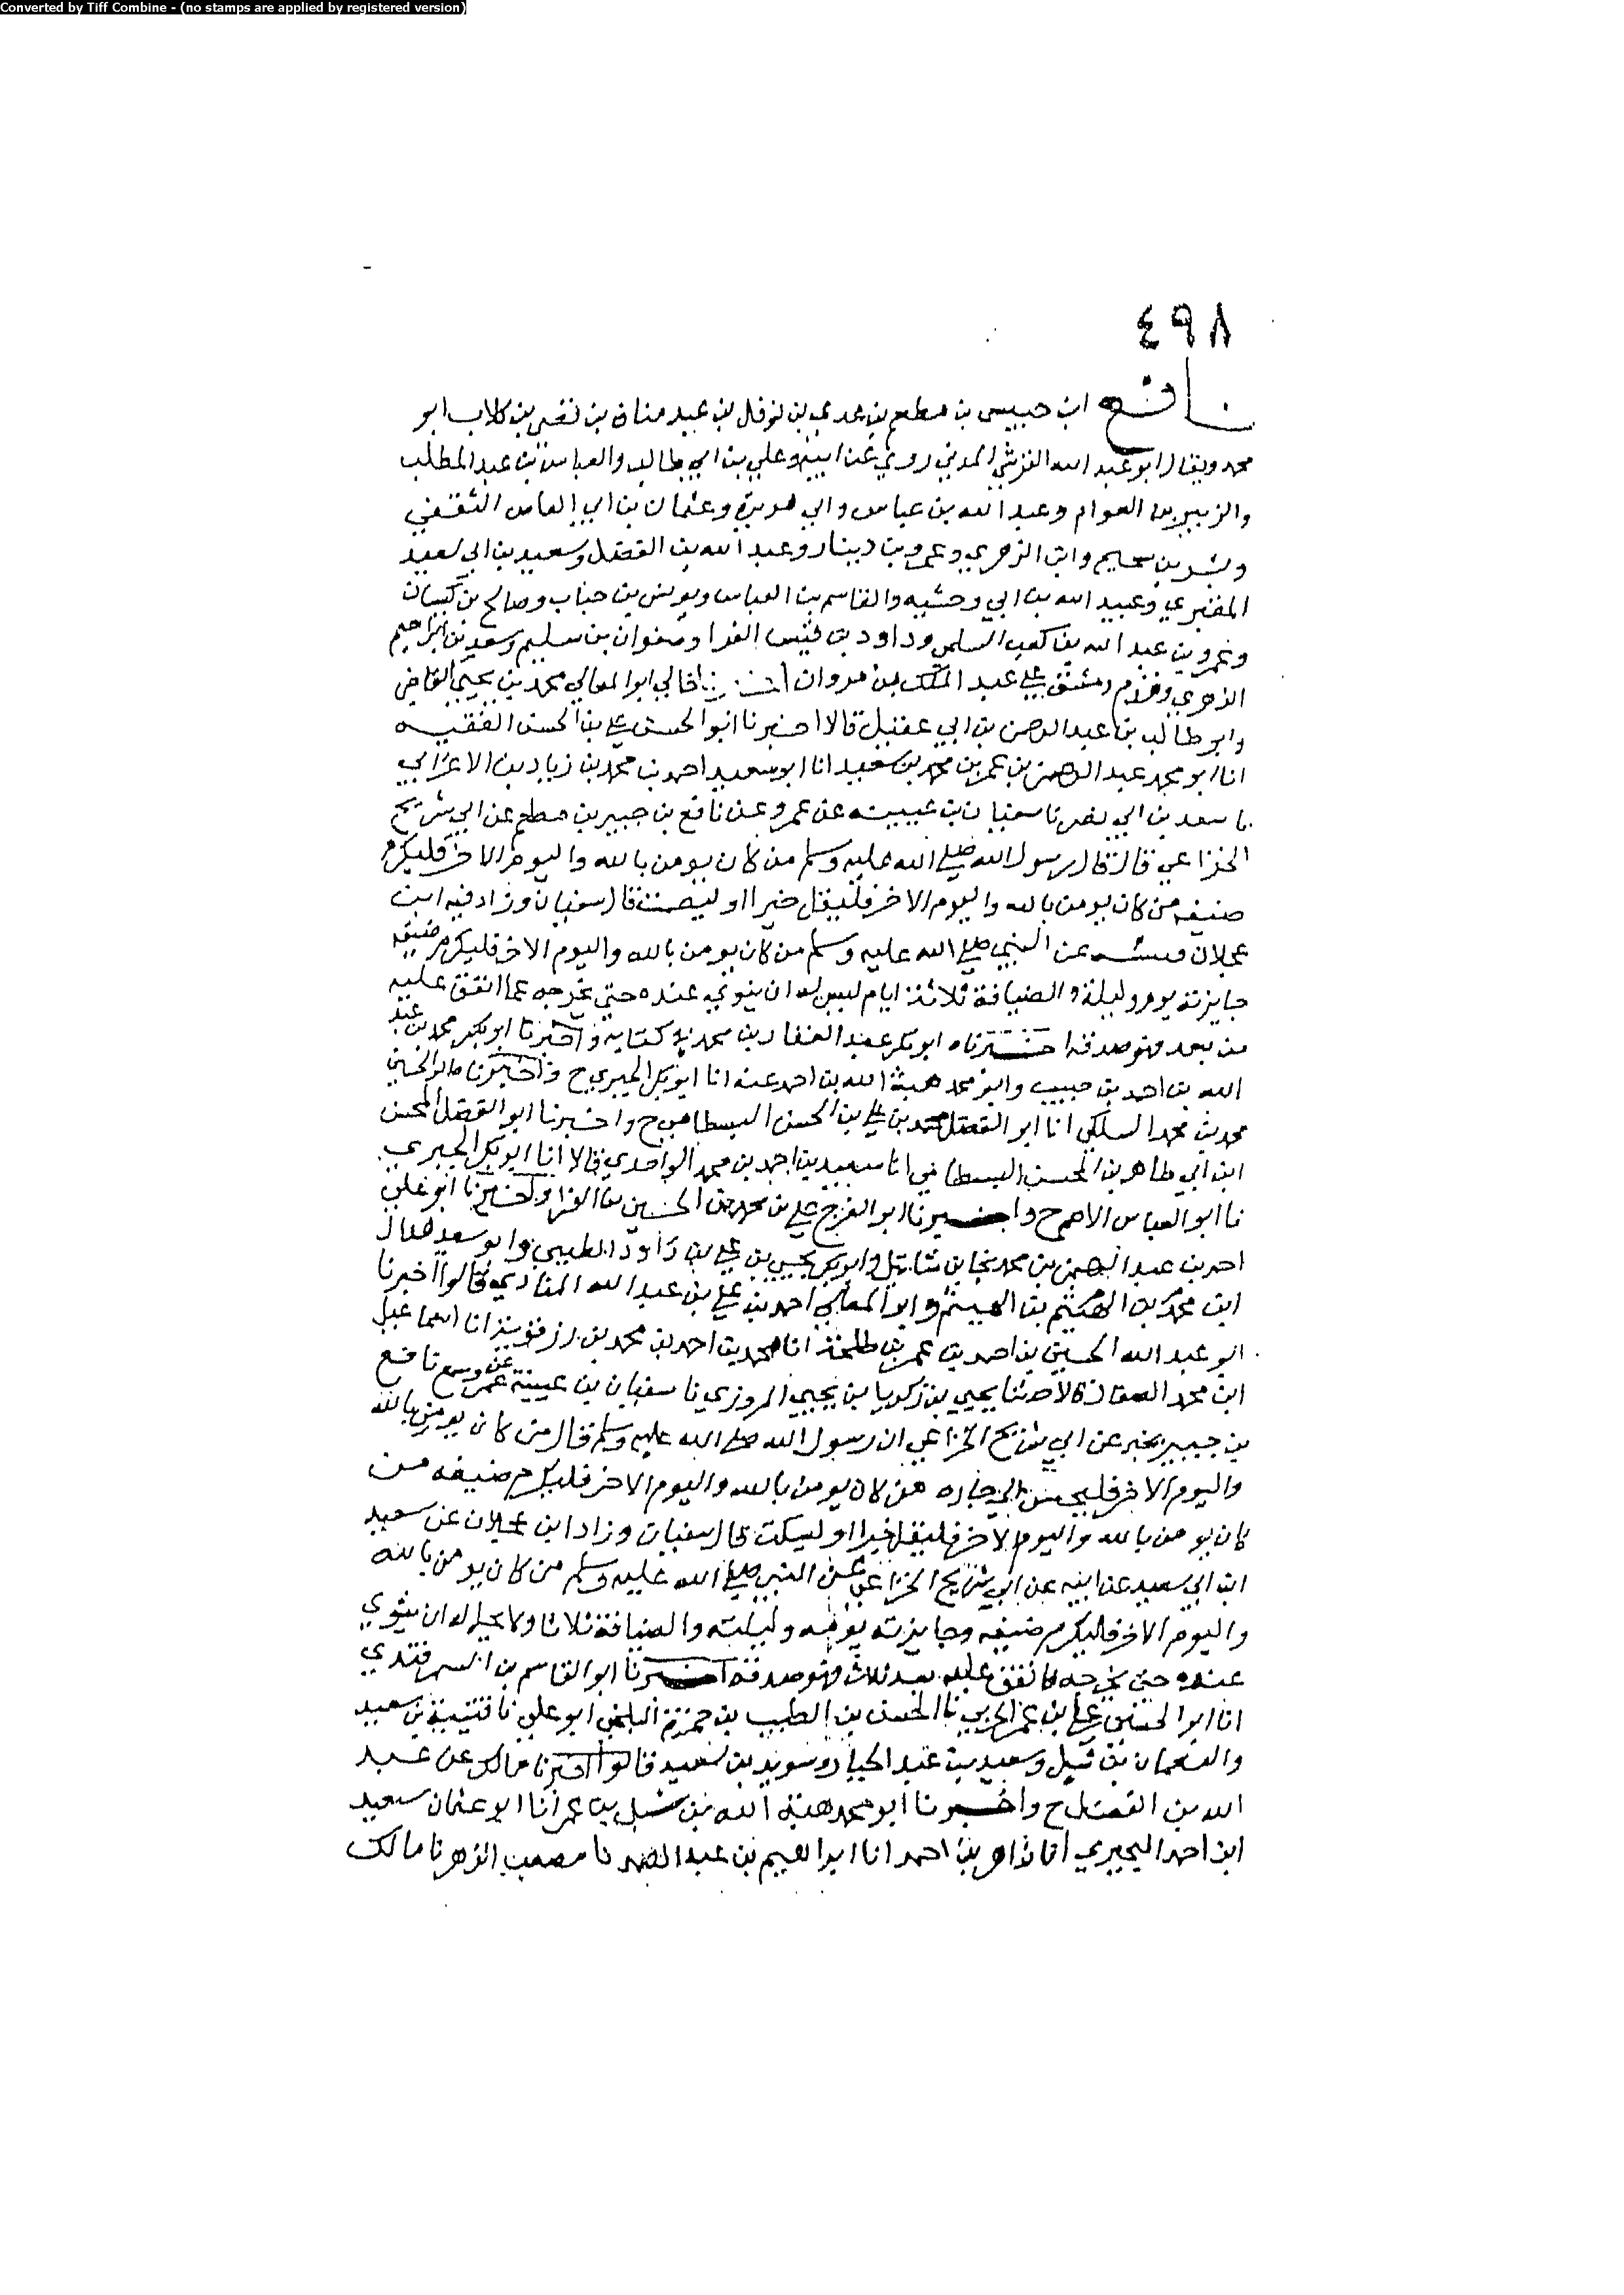 Converted by Tiff Combine - (no stamps are applied by registered version)
٤٩٨
نافع ابن جبيس بن مطعم بن عدي بن نوفل بن عبد مناة بن نقصي بن كلاب ابو
محمد ويقال ابو عبد الله القرشي المدني روي عن ابيه وعلي بن ابي طالب والعباس بن عبد المطلب
والزبير بن العوام وعبد الله بن عباس وابي هريرة وعثمان بن ابي العاص الثقفي
وبشر بن سحيم وابن الزهري وعمرو بن دينار وعبد الله بن الفضل وسعيد بن ابي سعيد
المقبري وعبيد الله بن ابي وحشيه والقاسم بن العباس ويونس بن خباب وصالح بن كيسان
وعمرو بن عبد الله بن كعب السلمي وداود بن قيس الفرا وصفوان بن سليم وسعد بن ابراهيم
الزهري وقدم دمشق علي عبد الملك بن مروان خالي ابو المعالي محمد بن يحيي القاضي
وابو طالب بن عبد الرحمن بن ابي عقيل قالا اخبرنا ابو الحسن علي بن الحسن الفقيه
انا ابو محمد عبد الرحمن بن عمر بن محمد بن سعيد انا ابو سعيد احمد بن محمد بن زياد بن الاعرابي
نا سعد بن ابي نصر نا سفيان بن عيينه عن عمرو عن نافع بن جبير بن مطعم عن ابي شريح
الخزاعي قال قال رسول الله صلي الله عليه وسلم من كان يومن بالله واليوم الاخر فليكرم
ضيفه من كان يومن بالله واليوم الاخر فليقل خيرا او ليصمت قال سفيان وزاد فيه ابن
عجلان عن النبي صلي الله عليه وسلم من كان يومن بالله واليوم الاخر فليكرم ضيفه
جايزته يوم وليلة والضيافة ثلاثة ايام ليس له ان يثوي عنده حتي يخرجه عما انفق عليه
من بعد فهو صدقه اخبرناه ابو بكر عبد الغفار بن محمد في كتابه واخبرنا ابو بكر محمد بن عبد
الله بن احمد بن حبيب وابو محمد هبة الله بن احمد عنه انا ابو بكر الحيري ح واخبرنا ابو الحسن
محمد بن محمد السلكي انا ابو الفضل محمد بن علي بن الحسن البسطامي ح واخبرنا ابو الفضل المحسن
ابن ابي طاهر بن الحسن البسطامي انا سعيد بن احمد بن محمد الواحدي قالا انا ابو بكر الحيري
نا ابو العباس الاصم ح واخبرنا ابو الفرج علي بن محمد بن الحسين بن الفرا واخبرنا ابو علي
احمد بن عبد الرحمن بن محمد بن شاتيل وابو بكر يحيي بن علي بن داود الطيبي وابو سعد هلال
ابن محمد بن الهيثم بن الهيثم وابو المعالي احمد بن علي بن عبد الله المنادي قالوا اخبرنا
ابو عبد الله الحسين بن احمد بن عمر بن طلحة انا محمد بن احمد بن محمد بن رزقويه نا اسماعيل
ابن محمد الصفار قالا حدثنا يحيي بن زكريا بن يحيي المروزي نا سفيان بن عيينة عن عمر وسمع نافع
بن جبير يخبر عن ابي شريح الخزاعي ان رسول الله صلي الله عليه وسلم قال من كان يومن بالله
واليوم الاخر فليحسن الي جاره من كان يومن بالله واليوم الاخر فليكرم ضيفه من
كان يومن بالله واليوم الاخر فليقل خيرا او ليسكت قال سفيان وزاد ابن عجلان عن سعيد
ابن ابي سعيد عن ابيه عن ابي شريح الخزاعي عن النبي صلي الله عليه وسلم من كان يومن بالله
واليوم الاخر فليكرم ضيفه وجايزته يومه وليلته والضيافة ثلاثا ولا يحل له ان يثوي
عنده حتي يخرجه فما انفق عليه بعد ثلاث فهو صدقه اخبرنا ابو القاسم بن السمرقندي
انا ابو الحسين علي بن عمر الحربي نا الحسن بن الطيب بن حمزة البلخي ابو علي نا قتيبة بن سعيد
والنعمان بن شبل وسعيد بن عبد الجبار وسويد بن سعيد قالوا اخبرنا مالك عن عبد
الله بن الفضل ح واخبرنا ابو محمد هبة الله بن سهل بن عمر انا ابو عثمان سعيد
ابن احمد البحيري انا زاهر بن احمد انا ابراهيم بن عبد الصمد نا مصعب الزهر نا مالك